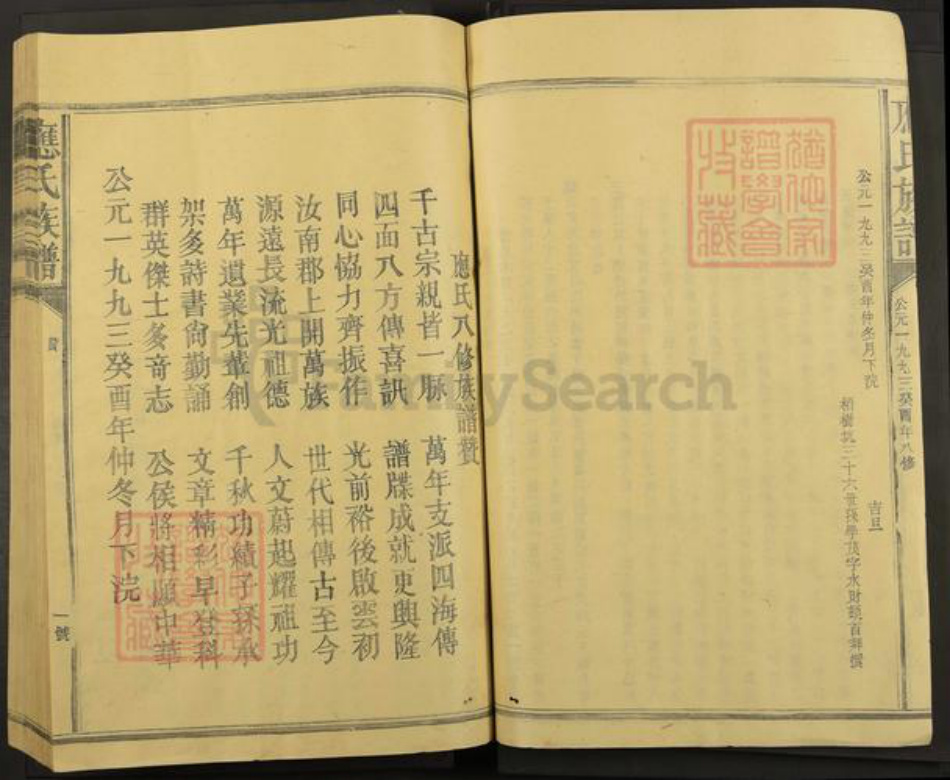 應氏族譜
公元一九九三癸酉年八修
公元一九九三癸酉年仲冬月下浣
吉旦
柏樹坑三十六世孫學茂字水財頓首拜撰
猶他家
譜學會
收藏
應氏八修族譜贊
千古宗親皆一脉 萬年支派四海傳
四面八方傳喜訊 譜牒成就更興隆
同心協力齊振作 光前裕後啟雲初
汝南郡上開萬族 世代相傳古至今
源遠長流光祖德 人文蔚起耀祖功
萬年遺業先輩創 千秋功績子孫承
架多詩書尚勤誦 文章精彩早登科
群英傑士多奇志 公侯將相顯中華
公元一九九三癸酉年仲冬月下浣
應氏族譜
贊
一號
FamilySearch